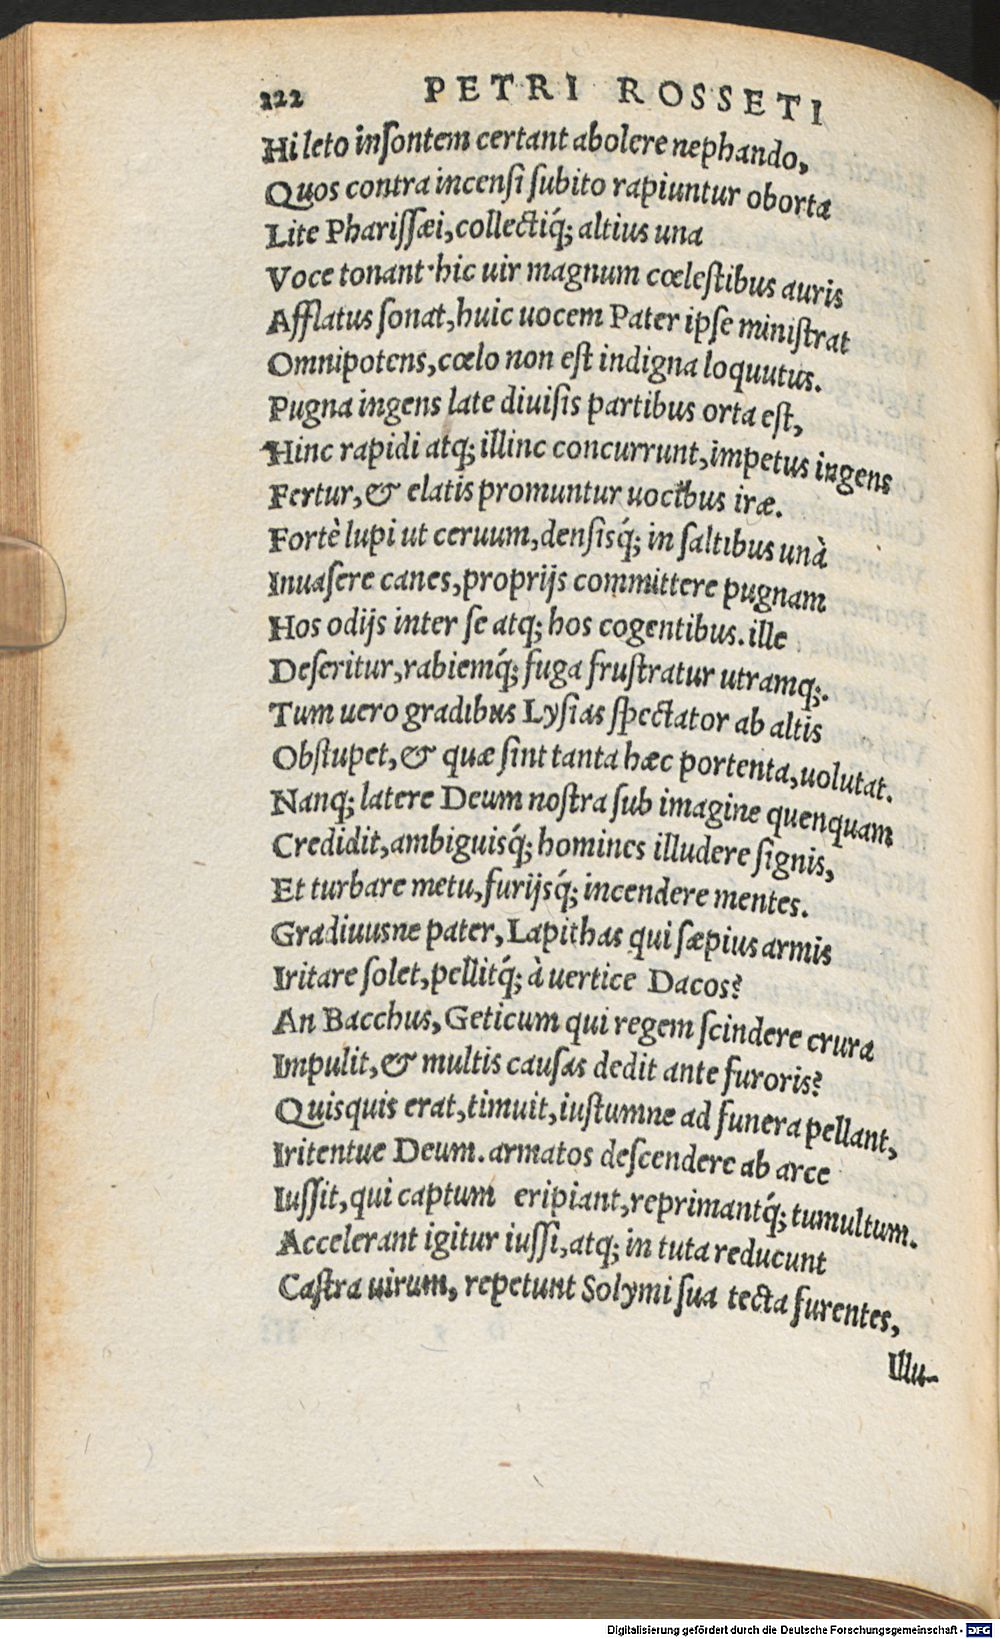 222 PETRI ROSSETI
Hi leto inſontem certant abolere nephando,
Quos contra incenſi ſubito rapiuntur oborta
Lite Phariſſæi, collectiq́; altius una
Voce tonant·hic uir magnum cœleſtibus auris
Afflatus ſonat, huic uocem Pater ipſe miniſtrat
Omnipotens, cœlo non eſt indigna loquutus.
Pugna ingens late diuiſis partibus orta eſt,
Hinc rapidi atq; illinc concurrunt, impetus ingens
Fertur, & elatis promuntur uocibus iræ.
Fortè lupi ut ceruum, denſisq́; in ſaltibus unà
Inuaſere canes, proprijs committere pugnam
Hos odijs inter ſe atq; hos cogentibus. ille
Deſeritur, rabiemq́; fuga fruſtratur utramq;.
Tum uero gradibus Lyſias ſpectator ab altis
Obſtupet, & quæ ſint tanta hæc portenta, uolutat.
Nanq; latere Deum noſtra ſub imagine quenquam
Credidit, ambiguisq́; homines illudere ſignis,
Et turbare metu, furijsq́; incendere mentes.
Gradiuusne pater, Lapithas qui ſæpius armis
Iritare ſolet, pellitq́; à uertice Dacos?
An Bacchus, Geticum qui regem ſcindere crura
Impulit, & multis cauſas dedit ante furoris?
Quisquis erat, timuit, iuſtumne ad funera pellant,
Iritentue Deum. armatos deſcendere ab arce
Iuſſit, qui captum eripiant, reprimantq́; tumultum.
Accelerant igitur iuſſi, atq; in tuta reducunt
Caſtra uirum, repetunt Solymi ſua tecta furentes,
Illu-
Digitalisierung gefördert durch die Deutsche Forschungsgemeinschaft - DFG